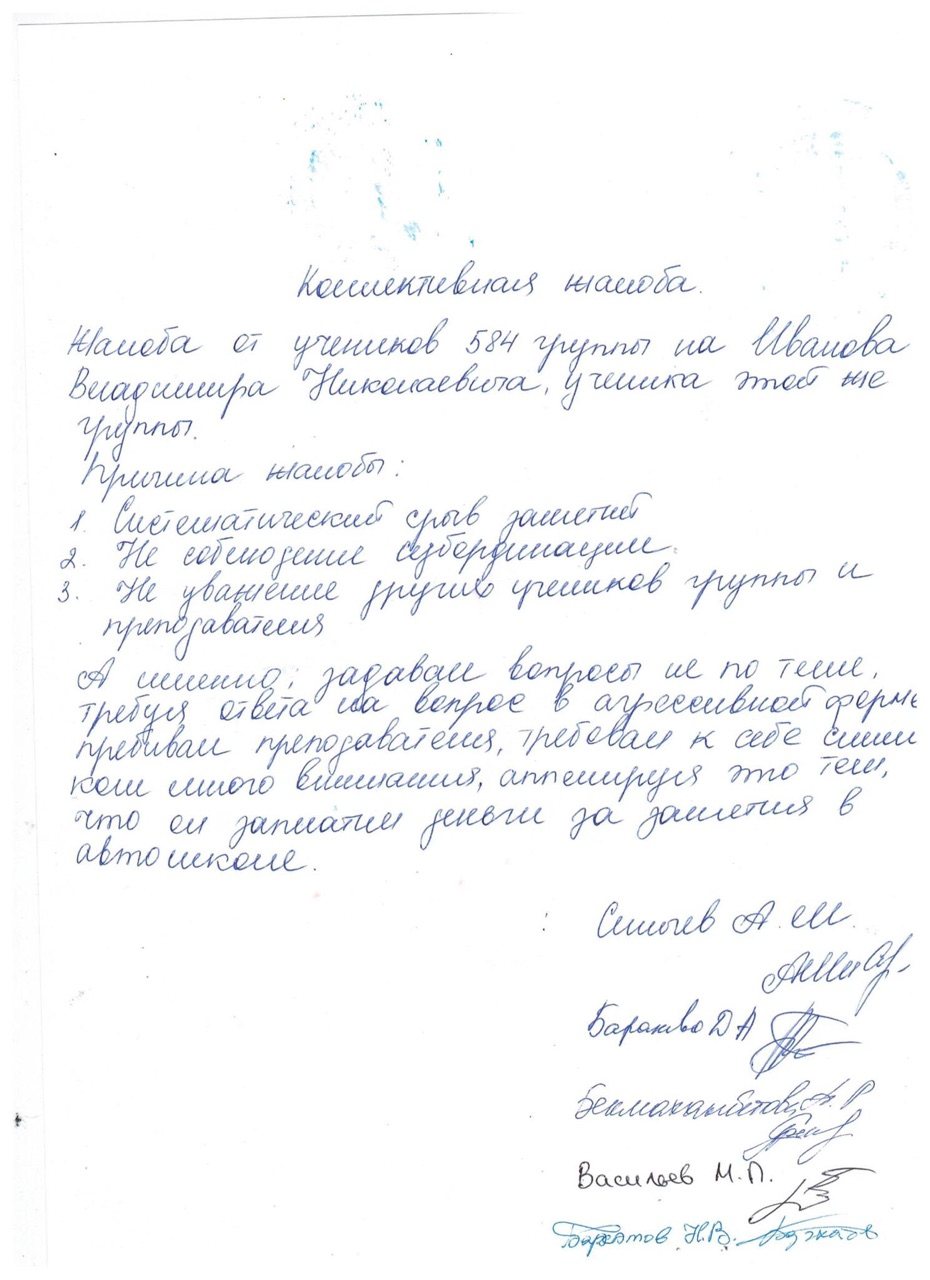 Коллективная жалоба.
Жалоба от учеников 584 группы на Иванова
Владимира Николаевича, ученика этой же
группы.
Причина жалобы:
1. Систематический срыв занятий
2. Не соблюдение субординации.
3. Не уважение других учеников группы и
преподавателя
А именно: задавал вопросы не по теме,
требуя ответа на вопрос в агрессивной форме
пребивал преподавателя, требовал к себе слиш
ком много внимания, аппелируя это тем,
что он заплатил деньги за занятия в
автошколе.
А. Ш.
Д А
Васильев М.П.
Н.В.